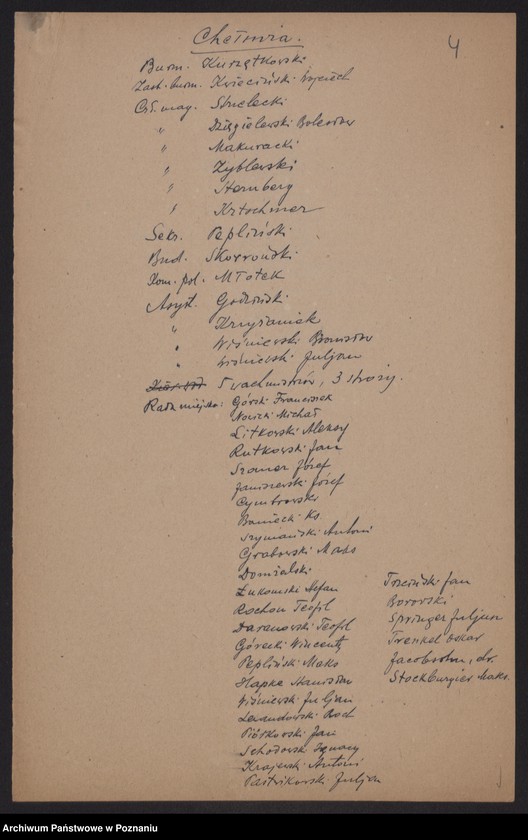 Chełmża.
4
Burm. Kurzętkowski
Zast. burm. Kwieciński Wojciech
Czł. mag. Strzelecki
" Dzięgielewski Bolesław
" Makuracki
" Zyblewski
" Sternberg
" Krtschmer
Sekr. Pepliński
Bud.
Kom. pol. Młotek
Asyst.
" Krzyżaniak
" Wiśniewski Bronisław
" Wiśniewski Juljan
5 wachmistrzów, 3 stróży.
Rada miejska: Górski Franciszek
Nowicki Michał
Litkowski Aleksy
Rutkowski Jan
Szomer Józef
Janiszewski Józef
Cymbrowski
Baniecki Ks.
Szymański Antoni
Grabowski Maks
Domżalski
Łukomski Stefan
Rochon Teofil
Daranowski Teofil
Górecki Wincenty
Pepliński Maks
Hapke Stanisław
Wiśniewski Juljan
Lewandowski Roch
Piórkowski Jan
Schodowski Ignacy
Krajewski Antoni
Pastwikowski Juljan
Trzciński Jan
Borowski
Springer Juljusz
Trenkel Oskar
Jacobsohn, dr.
Stockburger Maks.
Archiwum Państwowe w Poznaniu